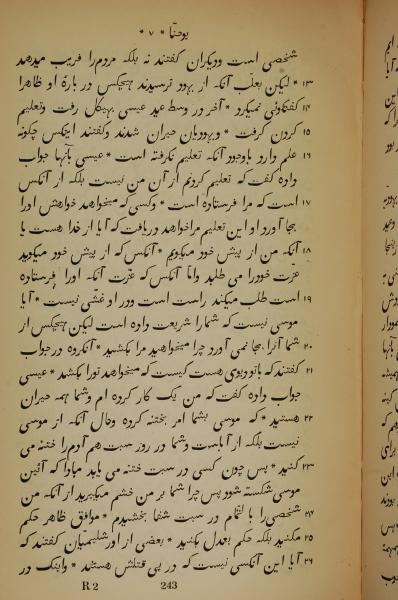 یوحنا * ۷ *
شخصی است ودیکران کفتند نه بلکه مردمرا فریب میدهد
۱۳ * لیکن بعلّت آنکه از یهود ترسیدند هیچکس در بارهٔ او ظاهرا
۱۴ کفتکوئی نمیکرد * آخر در وسط عید عیسی بهیکل رفت وتعلیم
۱۵ کردن کرفت * ویهودیان حیران شدند وکفتند اینکس چکونه
۱۶ علم دارد باوجود آنکه تعلیم نکرفته است * عیسی بآنها جواب
داده کفت که تعلیم کردنم از آن من نیست بلکه از آنکس
۱۷ است که مرا فرستاده است * وکسی که میخواهد خواهش اورا
بجا آورد او این تعلیم مراخواهد دریافت که آیا از خدا هست یا
۱۸ آنکه من از پیش خود میکویم * آنکس که از پیش خود میکوید
عزت خودرا می طلبد وامّا آنکس که عزّت آنکه اورا فرستاده
۱۹ است طلب میکند راست است ودر او غشّی نیست * آیا
موسی نیست که شمارا شریعت داده است لیکن هیچکس از
۲۰ شما آنرا بجا نمی آورد چرا میخواهید مرا بکشید * آنکروه در جواب
۲۱ کفتند که باتو دیوی هست کیست که میخواهد تورا بکشد * عیسی
جواب داده کفت که من یک کار کرده ام وشما همه حیران
۲۲ هستید * که موسی بشما امر بختنه کرده وحال آنکه از موسی
نیست بلکه از آباست وشما در روز سبت هم آدمرا ختنه می
۲۳ کنید * پس چون کسی در سبت ختنه می یابد مبادا که آئین
موسی شکسته شود پس چرا شما بر من خشم میکیرید از آنکه من
۲۴ شخصی را بالتمام در سبت شفا بخشیدم * موافق ظاهر حکم
۲۵ مکنید بلکه حکم بعدل بکنید * بعضی از اورشلیمیان کفتند که
۲۶ آیا این آنکسی نیست که در پی قتلش هستند * واینک در
R 2 243